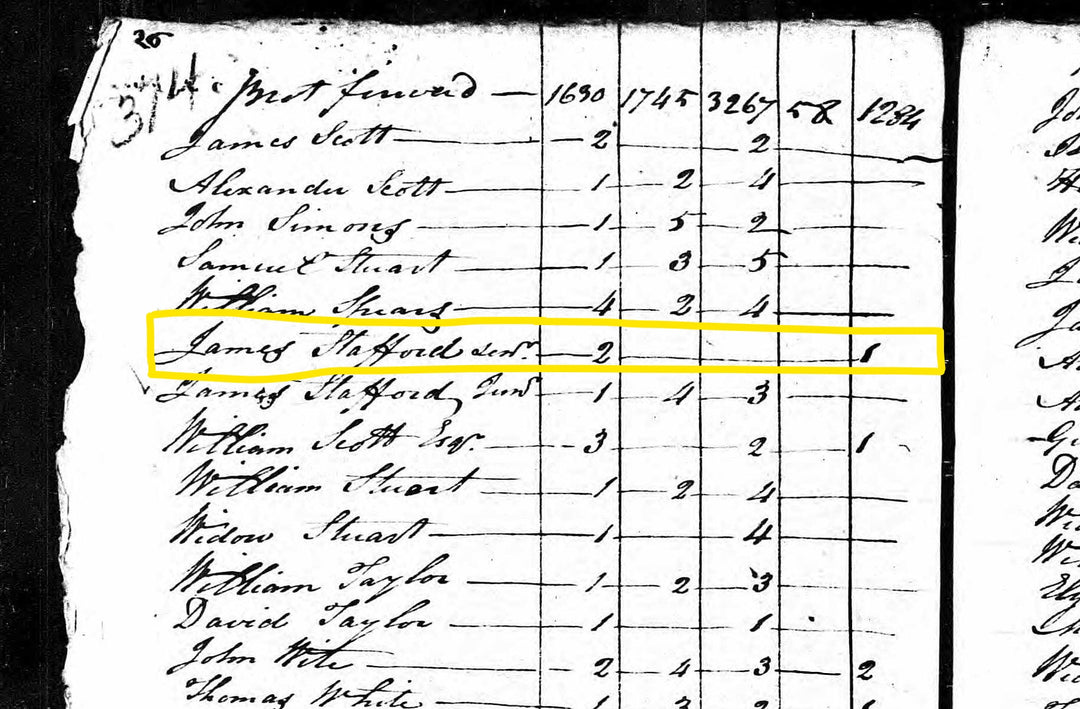 26
374.
Brot forward — 1630 1745 3267 58 1284
James Scott — 2 — 2 —
Alexander Scott — 1 — 2 — 4 —
John Simons — 1 — 5 — 2 —
Samuel Stuart — 1 — 3 — 5 —
William Spears — 4 — 2 — 4 —
James Stafford Senr. — 2 — 1
James Stafford Junr — 1 — 4 — 3 —
William Scott Esqr. — 3 — 2 — 1 -
William Stuart — 1 — 2 — 4 —
Widow Stuart — 1 — 4 —
William Taylor — 1 — 2 — 3 —
David Taylor — 1 — 1 —
John Wite — 2 — 4 — 3 — 2
Thomas White — 1 — 3 — 2 — 1